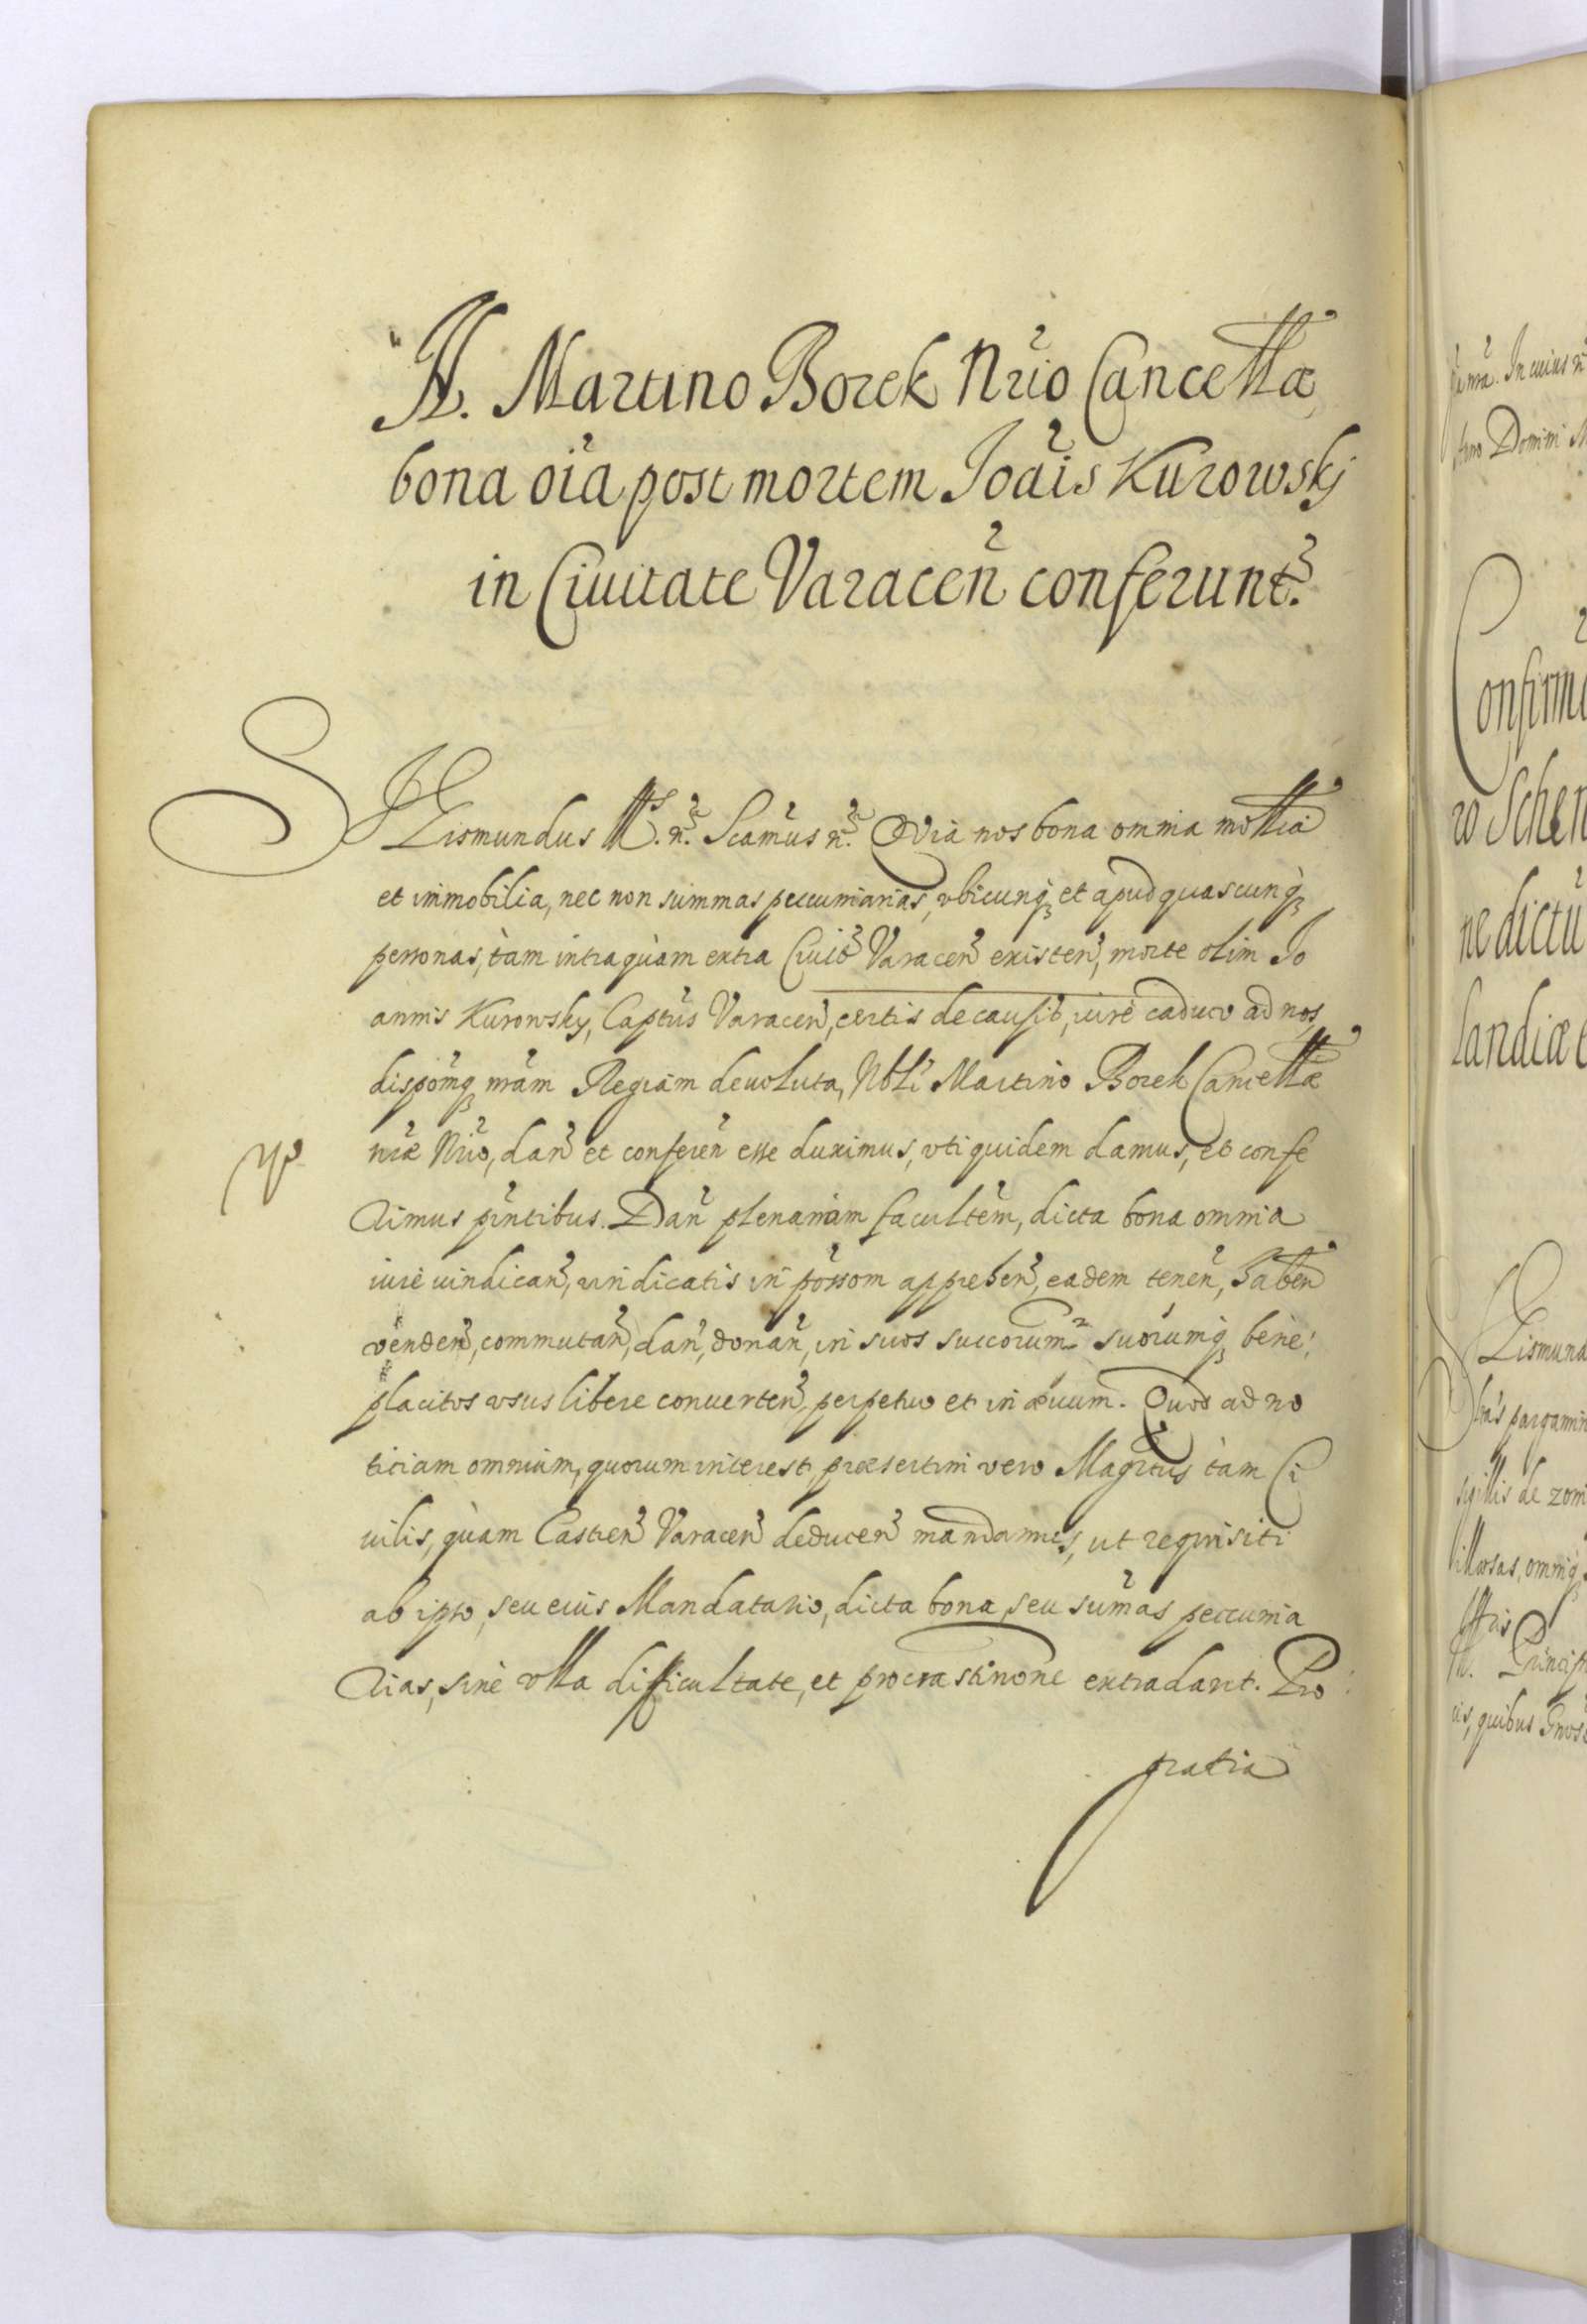 N. Martino Borek Nrio Cancellæ
bona oia post mortem Joais Kurowskj
in Ciuitate Varacen conferunt.
SIgismundus III. n. Scamus n. Quia nos bona omnia mollia
et immobilia, nec non summas peccuniarias, vbicunq et apud quascunq
personas, tàm intra quàm extra Ciuit Varacen existen, morte olim Jo
annis Kurowsky, Captus Varacen, certis de causis, iure caduco ad nos
dispomq nram Regiam deuoluta, Nbli Martino Borek Cancellæ
nræ Nrio, dan et conferen esse duximus, vti quidem damus, et confe
rimus pntibus. Dan plenariam facultem, dicta bona omnia
iure uindican, uindicatis in possom apprehen, eadem tenen, haben
venden, commutan, dan, donan, in suos succorum suorumq bene
placitos vsus libere conuerten, perpetuo et in æuum. Quod ad no
titiam omnium, quorum interest, præsertim vero Magrtus tàm Ci
uilis, quàm Castren Varacen deducen mandamus, ut requisiti
ab ipso, seu eius Mandatario, dicta bona, seu sumas peccunia
rias, sine vlla difficultate, et procrastinone extradant. Pro
gratia
Confirma
w Schen
ne dictu
landiæ